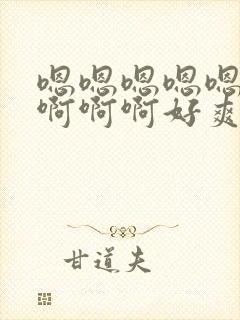 嗯嗯嗯嗯嗯
啊啊啊好爽
甘道夫